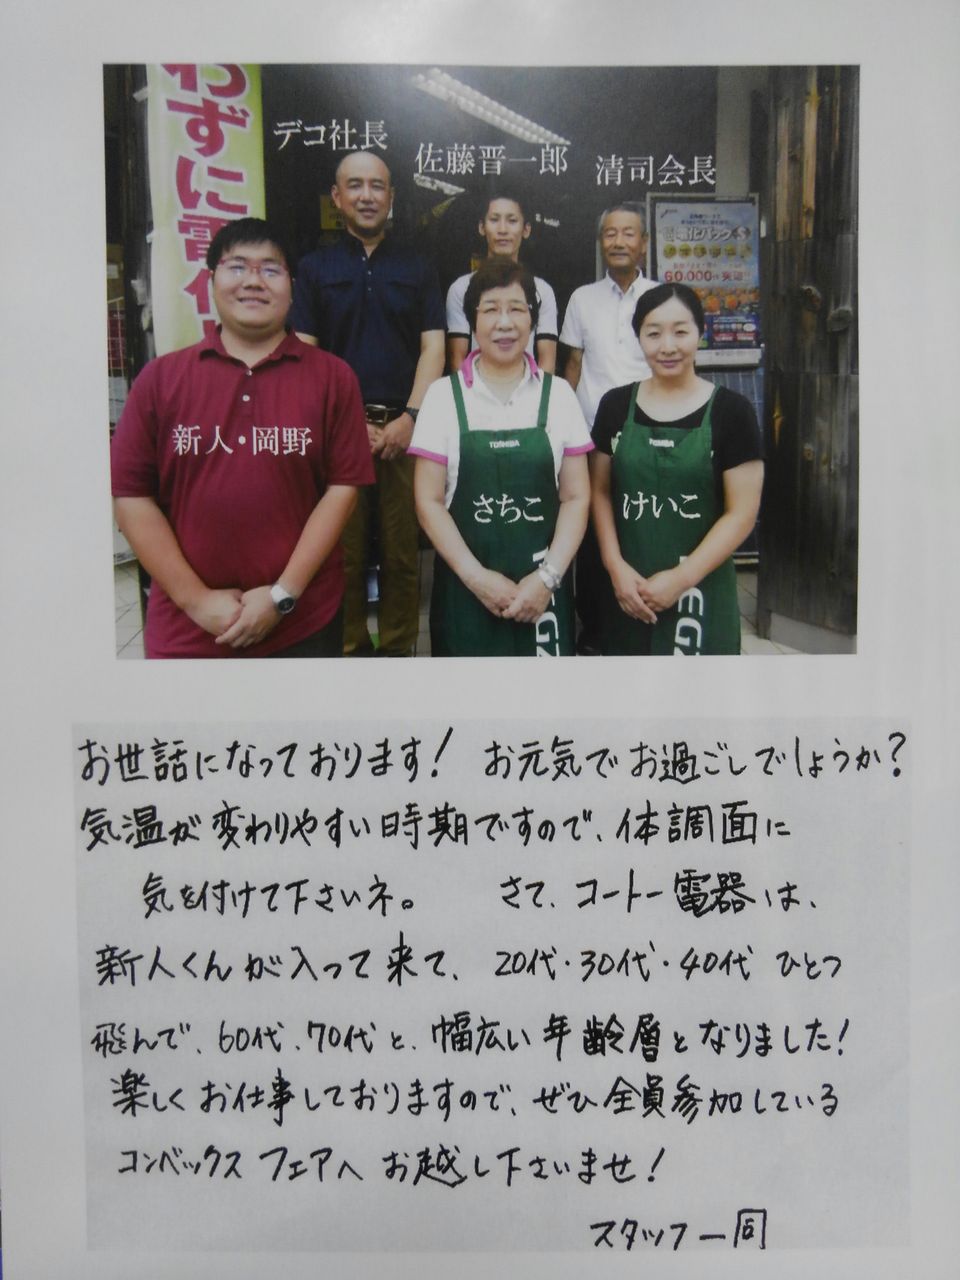 わずに電化
デコ社長
佐藤晋一郎
清司会長
60,000
新人・岡野
TOSHIBA
TOSHIBA
さちこ
けいこ
REGZ
お世話になっております! お元気でお過ごしでしょうか?
気温が変わりやすい時期ですので、体調面に
気を付けて下さいネ。 さて、コートー電器は、
新人くんが入って来て、20代・30代・40代 ひとつ
飛んで、60代、70代と、幅広い年齢層となりました!
楽しくお仕事しておりますので、ぜひ全員参加している
コンベックスフェアへお越し下さいませ!
スタッフ一同